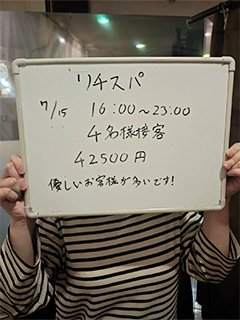 リチスパ
7/15 16:00~23:00
4名様接客
42500円
優しいお客様が多いです!